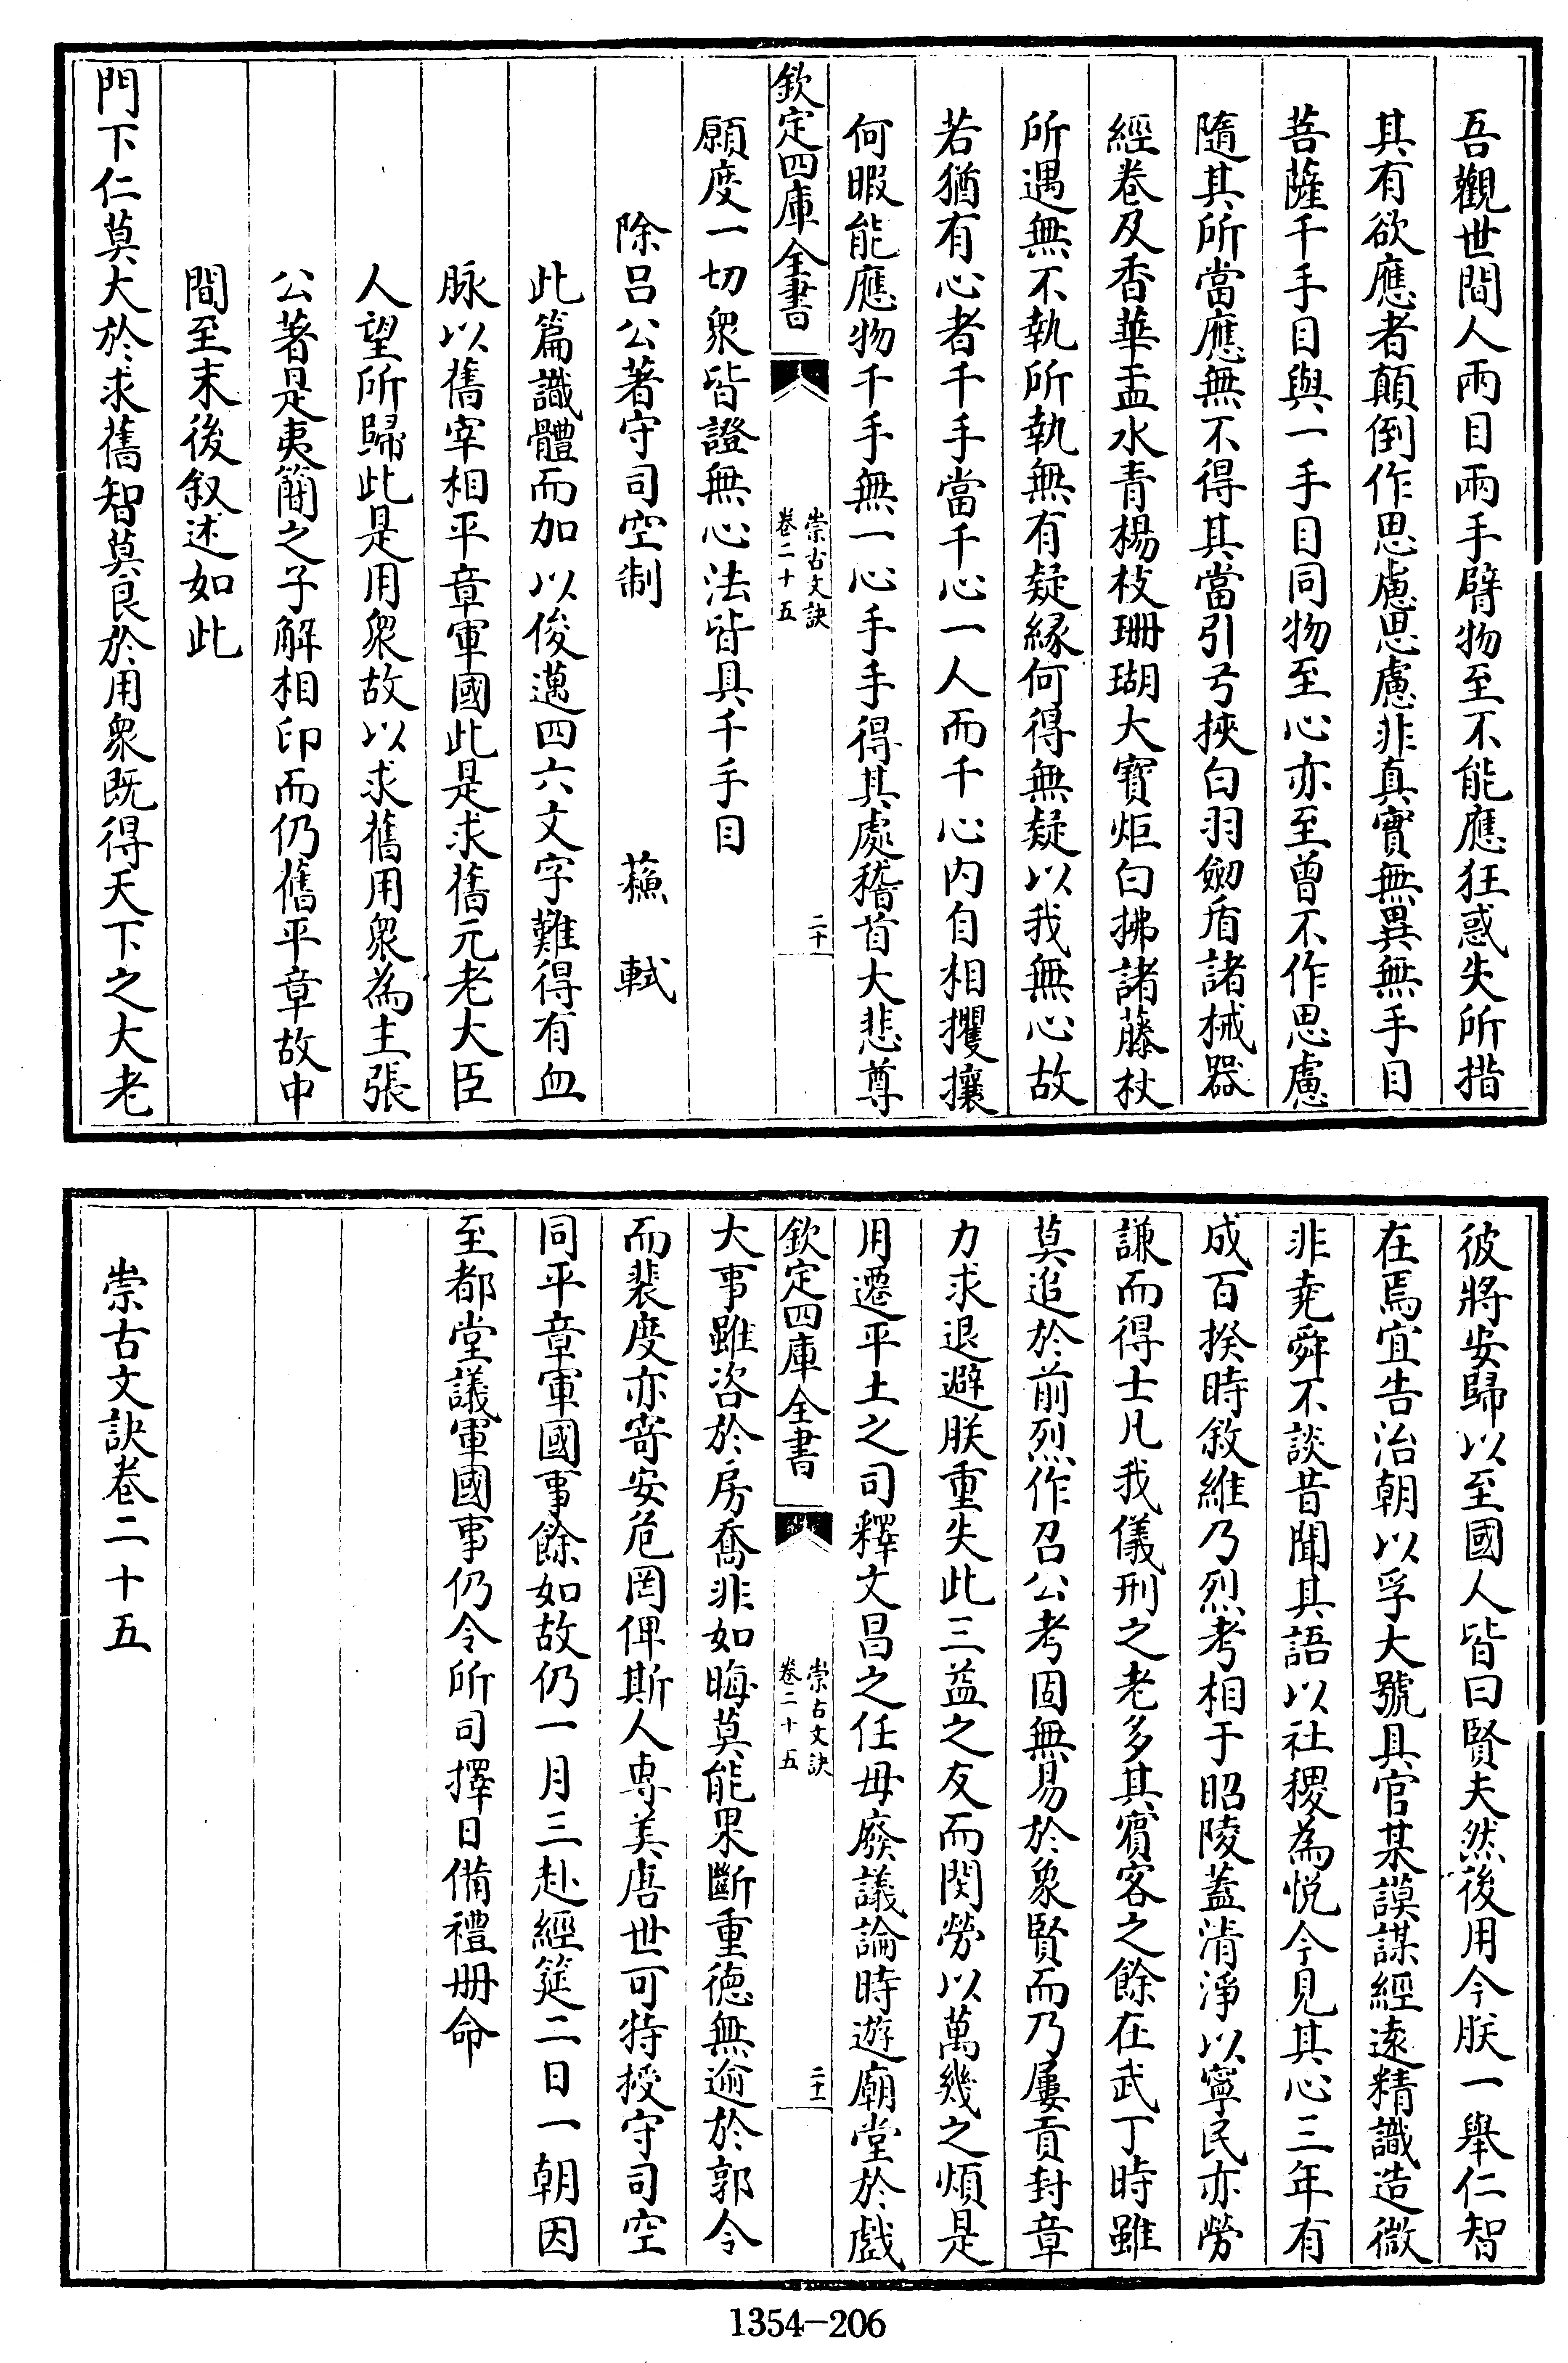 吾觀世間人兩目兩手臂物至不能應狂惑失所措
其有欲應者顛倒作思慮思慮非真實無異無手目
菩薩千手目與一手目同物至心亦至曾不作思慮
隨其所當應無不得其當引弓挾白羽劒盾諸械器
經卷及香華盂水青楊枝珊瑚大寶炬白拂諸藤杖
所遇無不執所執無有疑緣何得無疑以我無心故
若猶有心者千手當千心一人而千心內自相攫攘
何暇能應物千手無一心手手得其處稽首大悲尊
欽定四庫全書
崇古文訣
卷二十五
二十
願度一切衆皆證無心法皆具千手目
除呂公著守司空制　蘇　軾
此篇識體而加以俊邁四六文字難得有血
脉以舊宰相平章軍國此是求舊元老大臣
人望所歸此是用衆故以求舊用衆為主張
公著是夷簡之子解相印而仍舊平章故中
間至末後叙述如此
門下仁莫大於求舊智莫良於用衆既得天下之大老
彼將安歸以至國人皆曰賢夫然後用今朕一舉仁智
在焉宜告治朝以孚大號具官某謨謀經遠精識造微
非堯舜不談昔聞其語以社稷為悅今見其心三年有
成百揆時敘維乃烈考相于昭陵蓋清淨以寧民亦勞
謙而得士凡我儀刑之老多其賓客之餘在武丁時雖
莫追於前烈作召公考固無易於象賢而乃屢貢封章
力求退避朕重失此三益之友而閔勞以萬幾之煩是
用遷平土之司釋文昌之任毋廢議論時遊廟堂於戲
欽定四庫全書
崇古文訣
卷二十五
二十一
大事雖咨於房喬非如晦莫能果斷重德無逾於郭令
而裴度亦寄安危罔俾斯人專美唐世可特授守司空
同平章軍國事餘如故仍一月三赴經筵二日一朝因
至都堂議軍國事仍令所司擇日備禮册命
崇古文訣卷二十五
1354-206